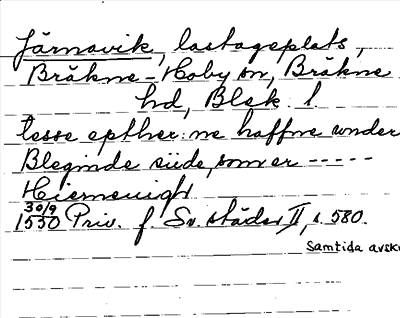 Järnavik, lastageplats,
Bräkne-Hoby sn, Bräkne
hd, Blek. l.
tesse epther:ne haffne under
Bleginde siide, som er -----
Hierneuigh
30/9 1530 Priv. f. Sv. städer II, s. 580.
Samtida avskr